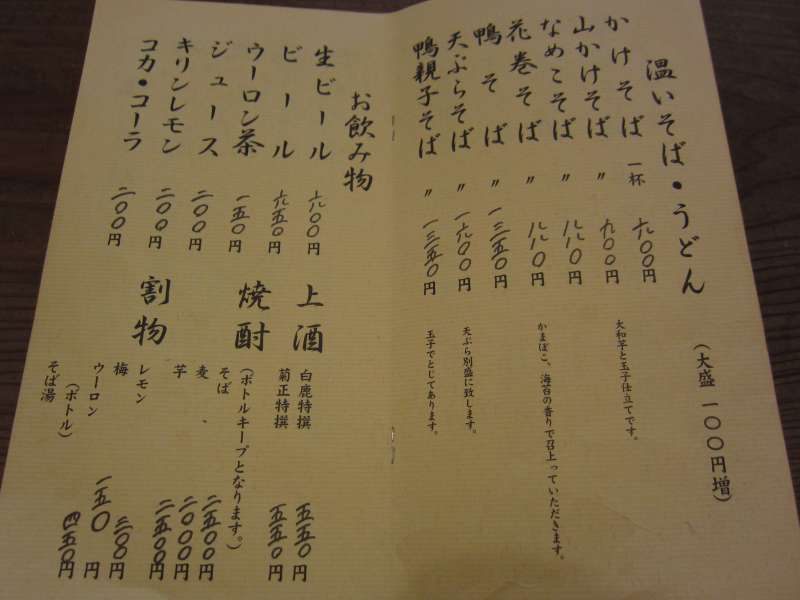 温いそば・うどん (大盛 一〇〇円増)
かけそば 一杯 六〇〇円
山かけそば 〃 九〇〇円 大和芋と玉子仕立てです。
なめこそば 〃 八八〇円
花巻そば 〃 八八〇円 かまぼこ、海苔の香りで召上っていただきます。
鴨そば 〃 一三五〇円
天ぷらそば 〃 一六〇〇円 天ぷら別盛に致します。
鴨親子そば 〃 一三五〇円 玉子でとじてあります。
お飲み物
生ビール 六〇〇円
ビール 六五〇円
ウーロン茶 一五〇円
ジュース 二〇〇円
キリンレモン 二〇〇円
コカ・コーラ 二〇〇円
上酒
白鹿特撰 五五〇円
菊正特撰 五五〇円
焼酎
(ボトルキープとなります。)
そば 二五〇〇円
麦、 二〇〇〇円
芋 二五〇〇円
割物
レモン
梅 三〇〇円
ウーロン 一五〇円
(ボトル) 四五〇円
そば湯